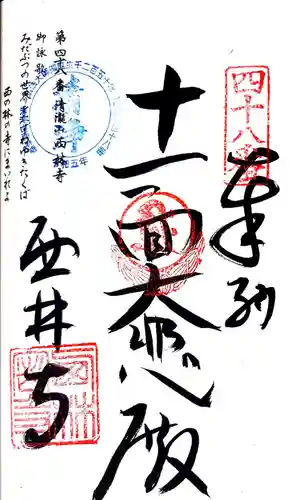 四十八番
奉納
十一面大悲殿
西林寺
第四十八番 清瀧山 西林寺
御詠歌
みだぶつの世界をたずねゆきたくば
西の林の寺にまいれよ